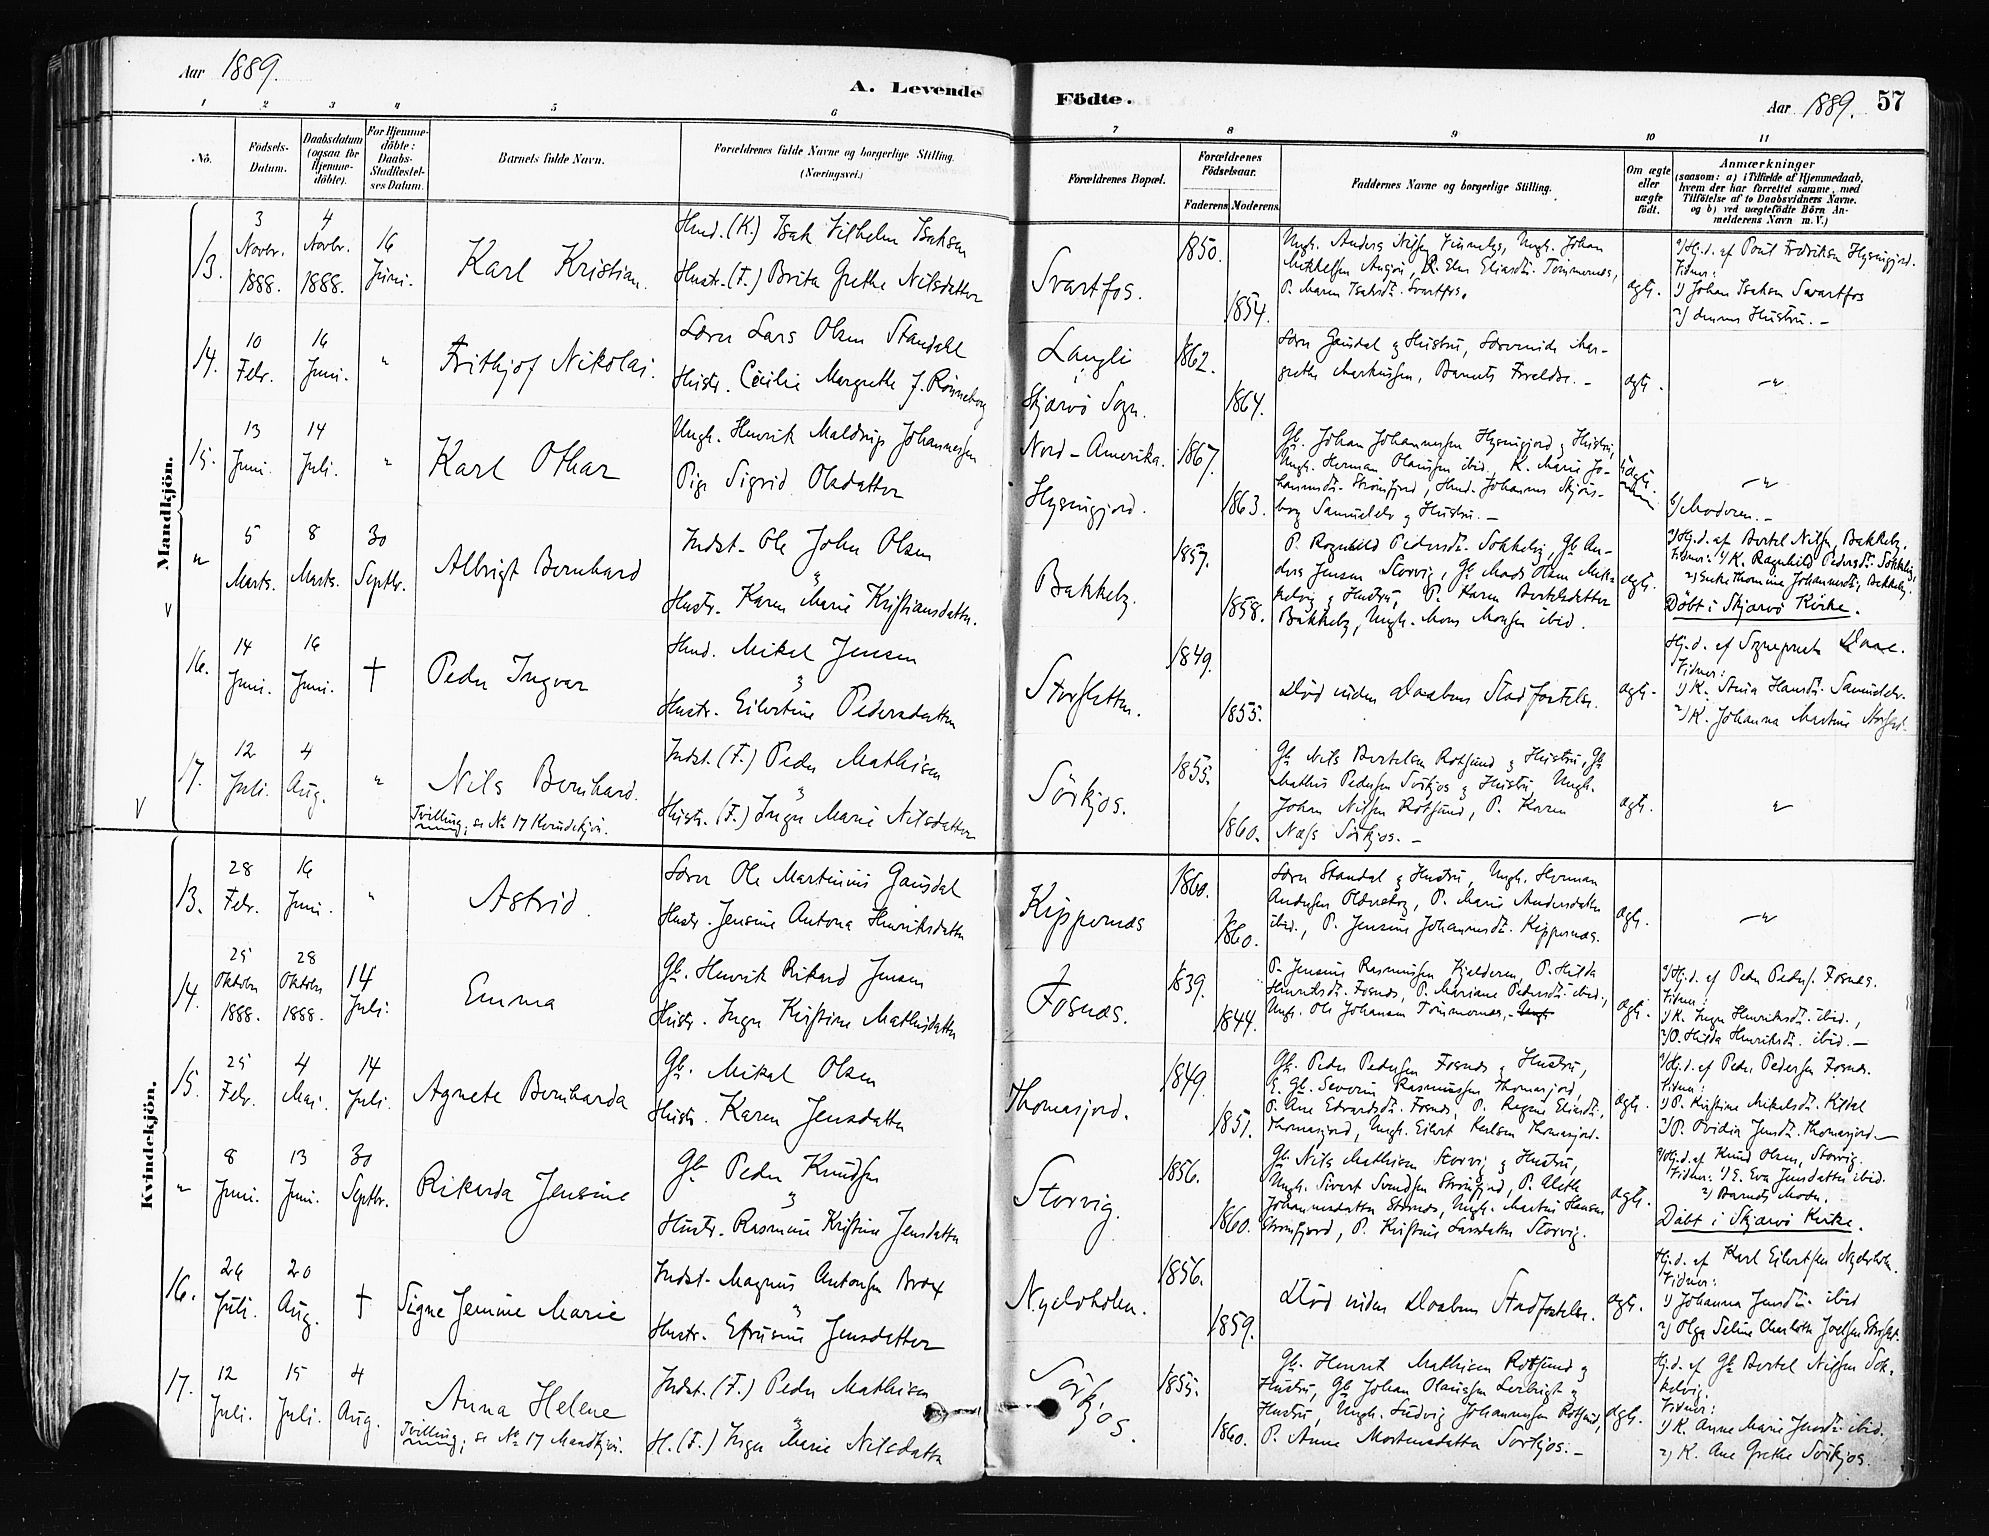 Aar 1889.
A. Levende Födte.
Aar 1889. 57
1 2 3 4 5 6 7 8 9 10 11
Nö.
Födsels-
Datum.
Daabsdatum
(ogsaa for
Hjemme-
döbte).
For Hjemme-
döbte:
Daabs-
Stadfæstel-
ses Datum.
Barnets fulde Navn.
Forældrenes fulde Navne og borgerlige Stilling.
(Næringsvei.)
Forældrenes Bopæl.
Forældrenes
Födselsaar.
Faderens Moderens
Faddernes Navne og borgerlige Stilling.
Om ægte
eller
uægte
födt.
Anmærkninger
(saasom: a) i Tilfælde af Hjemmedaab,
hvem der har forrettet samme, med
Tilföielse af to Daabsvidners Navne.
og b) ved uægtefödte Börn An-
melderens Navn m. V.)
Mandkjön.
13.
3
Novbr.
1888.
4
Novbr.
1888.
16
Juni.
Karl Kristian.
Hmd. (K.) Isak Vilhelm Isaksen
Hustr. (F.) Brita Grethe Nilsdatter
Svartfos.
1850.
1854.
P. Maren Isaksdr. Svartfos.
ægte.
Vidner:
1) Johan Isaksen Svartfos
2) dennes Hustru. -
14.
10
Febr.
16
Juni.
"
Frithjof Nikolai.
Lærer Lars Olsen Standahl
Hustr. Cecilie Margrethe f. Rönneborg
Langli
i
Skjærvö Sogn.
1862.
1864.
Lærer Gausdal og Hustru, Lærerinde Mar-
grethe Markussen, Barnets Forældre. -
ægte.
-"-
15.
13
Juni.
14
Juli.
"
Karl Othar
Ungk. Henrik Maldrup Johannessen
Pige Sigrid Olsdatter
Nord-Amerika.
Hysingjord.
1867.
1863.
Gb. Johan Johannessen Hysingjord og Hustru,
Ungk. Herman Olaussen ibid., K. Marie Jo-
hannesdr. Strömfjord, Hmd. Johannes Skjöns-
borg Samuelelv og Hustru. -
Uægte.
-"-
b) Moderen. -
"
5
Marts.
8
Marts.
30
Septbr.
Albrigt Bernhard
Indst. Ole John Olsen
og
Hustr. Karen Marie Kristiansdatter.
Bakkeby.
1857.
1858.
P. Ragnhild Pedersdr. Sokkelvig, Gb. An-
ders Jensen Storvig, Gb. Mads Olsen Mik-
kelvig og Hustru, P. Karen Bertelsdatter
Bakkeby, Ungk. Mons Monsen ibid.
ægte.
a) Hj.d. af Bertel Nilsen, Bakkeby.
Vidner: 1) K. Ragnhild Pedersdr. Sokkelvig,
2) Enke Thomine Johannesdr., Bakkeby.
Döbt i Skjærvö Kirke.
16.
14
Juni.
16
Juni.
†
Peder Ingvar
Hmd. Mikel Jensen
og
Hustr. Eilertine Pedersdatter
Storsletten.
1849.
1855.
Död inden Daabens Stadfæstelse.
ægte.
Hj.d. af Sogneprest Daae.
Vidner:
1) K. Stina Hansdr. Samuelelv.
2) K. Johanna Martine Storslet.
17.
12
Juli.
4
Aug.
"
Nils Bernhard.
Tvilling, se No 17 Kvindekjön.
Indst. (F.) Peder Mathisen
og
Hustr. (F.) Inger Marie Nilsdatter
Sörkjos.
1855.
1860.
Gb. Nils Bertelsen Rotsund og Hustru, Gb.
Mathis Pedersen Sörkjos og Hustru, Ungk.
Johan Nilsen Rotsund, P. Karen
Næss Sörkjos. -
ægte.
"
Kvindekjön.
13.
28
Febr.
16
Juni.
"
Astrid.
Lærer Ole Martinius Gausdal
Hustr. Jensine Antona Henriksdatter
Kippernæs
1860.
1860.
Lærer Standal og Hustru, Ungk. Herman
Andersen Oldneborg, P. Marie Andersdatter
ibid., P. Jensine Johannesdr. Kippernæs.
ægte.
-"-
14.
25
Oktober
1888.
28
Oktober
1888.
14
Juli.
Emma
Gb. Henrik Rikard Jensen
Hustr. Inger Kristine Mathisdatter
Fosnæs.
1839.
1844.
P. Jensine Rasmussen Kjelderen, P. Hilda
Henriksdr. Fosnæs, P. Mariane Pedersdr. ibid.,
Ungk. Ole Johansen Tömmernæs, -
ægte.
a) Hj.d. af Peder Peders. Fosnæs.
Vidner:
1) K. Inger Henriksdr. ibid.,
2) P. Hilda Henriksdr. ibid. -
15.
25
Febr.
4
Mai.
14
Juli.
Agnete Bernharda
Gb. Mikal Olsen
Hustr. Karen Jensdatter
Thomasjord.
1849.
1851.
Gb. Peder Pedersen Fosnæs og Hustru,
E. Gb. Severin Rasmussen Thomasjord,
P. Ane Edvardsdr. Fosnæs, P. Regine Eliasdr.
Thomasjord, Ungk. Eilert Karlsen Thomasjord.
ægte.
a) Hj.d. af Peder Pedersen Fosnæs.
Vidner:
1) P. Kristine Mikelsdr. Kildal
2) P. Ovidia Jensdr. Thomasjord. -
"
8
Juni.
13
Juni.
30
Septbr.
Rikarda Jensine
Gb. Peder Knudsen
og
Hustr. Rasmine Kristine Jensdatter
Storvig.
1856.
1860.
Gb. Nils Mathisen Storvig og Hustru,
Ungk. Sivert Svendsen Strömfjord, P. Alethe
Johannesdatter Stornæs, Ungk. Martin Hansen
Strömfjord, P. Kristine Larsdatter Storvig.
ægte.
a) Hj.d. af Knud Olsen, Storvig.
Vidner: 1) E. Eva Jensdatter ibid.
2) Barnets Moder.
Döbt i Skjærvö Kirke.
16.
26
Juli.
20
Aug.
†
Signe Jemine Marie
Indst. Magnus Antonsen Brox
og
Hustr. Efrusine Jensdatter
Nyelvholm.
1856.
1859.
Död inden Daabens Stadfæstelse.
ægte.
Hj.d. af Karl Eilertsen Nyelvholm.
Vidner:
1) Johanna Jensdr. ibid
2) Olga Seline Charlotte Joelsen Storslet.
17.
12
Juli.
15
Juli.
4
Aug.
Anna Helene
Tvilling, se No 17 Mandkjön.
Indst. (F.) Peder Mathisen
og
H. (F.) Inger Marie Nilsdatter
Sörkjos.
1855.
1860.
Gb. Henrik Mathisen Rotsund og
Hustru, Gb. Johan Olaussen Lerbugt og
Hustru, Ungk. Ludvig Johannesen Rotsund,
P. Anne Mortensdatter Sörkjos. -
ægte.
Hj.d. af Gb. Bertel Nilsen Sok-
kelvig.
Vidner:
1) K. Anne Marie Jensdr. ibid.
2) K. Ane Grethe Sörkjos.